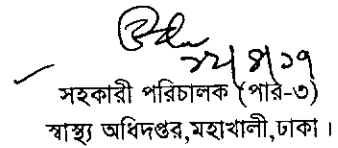 সহকারী পরিচালক (পার-৩)
স্বাস্থ্য অধিদপ্তর,মহাখালী,ঢাকা।